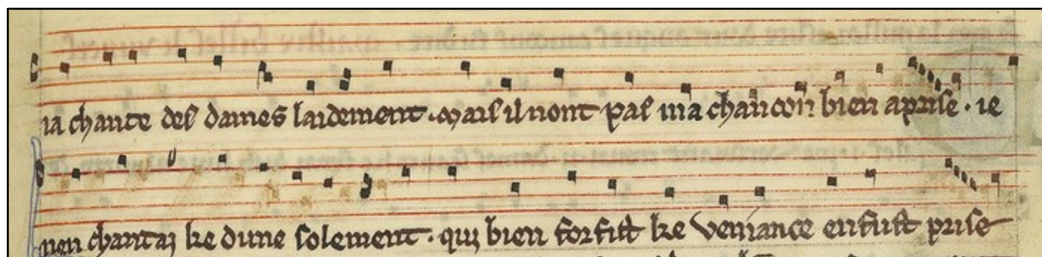 ia chante des dames laidement . mais il nont pas ma chancon bien aprise . ie
nen chantai ke dune solement . qui bien forfist ke veniance enfust prise